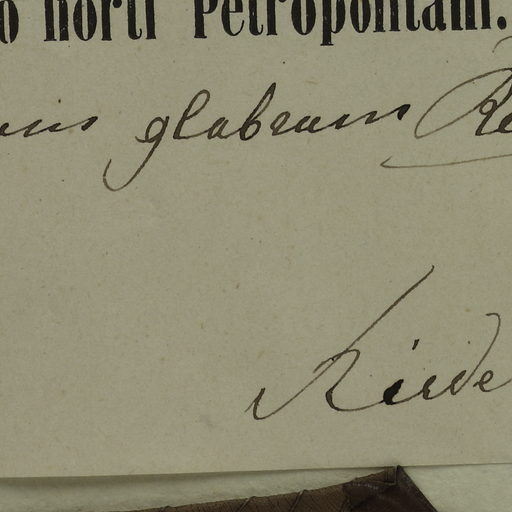 o horti Petropolitani.
glabrum Re
Riede